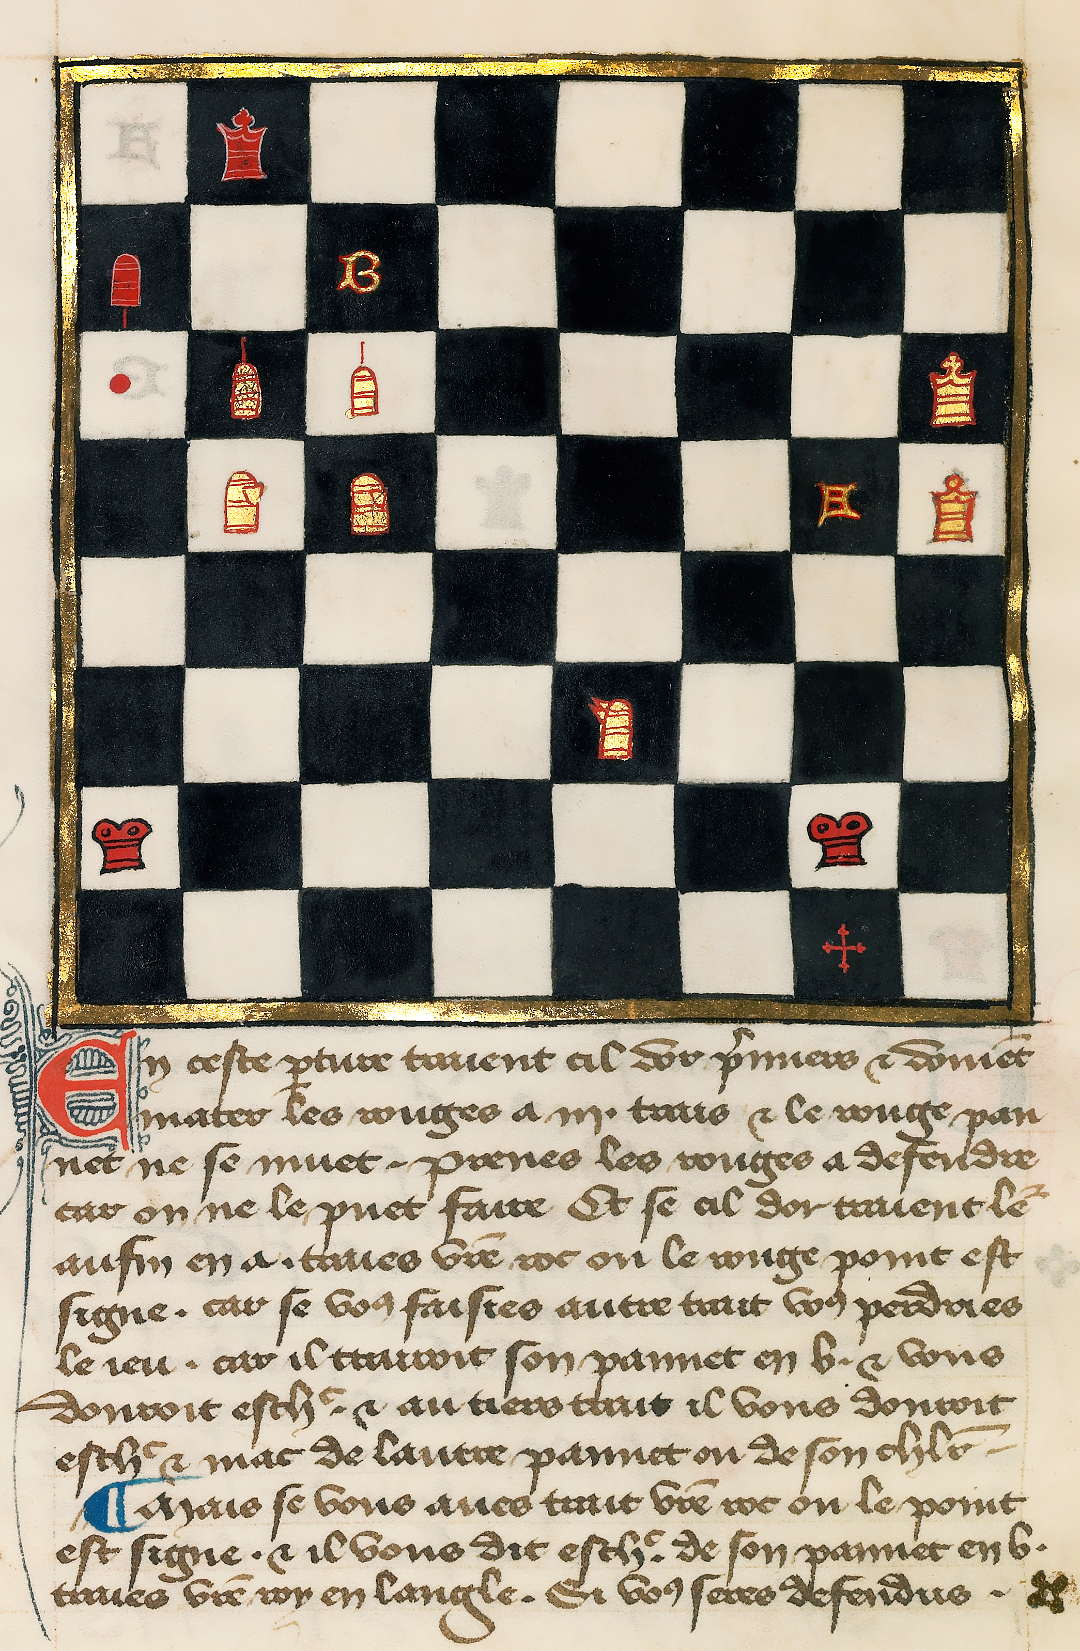 B
A
En ceste pture traient cil dor pmiers ⁊ doiuet
mater les rouges a iiij. trais ⁊ le rouge pan
net ne se muet. prenes les rouges a defendre
car on ne le puet faire Et se cil dor traient le
aufin en a. traies vre roc ou le rouge point est
signe. car se vos faisies autre trait vos perdries
le ieu. car il trairoit son pannet en b. ⁊ vous
donroit esch. ⁊ au tiers trait il vous donroit
esch ⁊ mat de lautre pannet ou de son chlr
¶ Mais se vous aues trait vre roc ou le point
est signe. ⁊ il vous dit esch. de son pannet en b.
traies vre roy en langle. Si vos seres defendus.